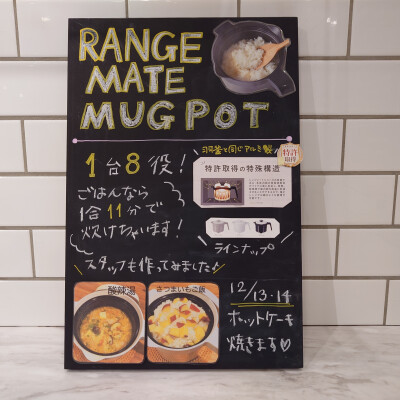 RANGE
MATE
MUGPOT
羽釜と同じアルミ製
特許
取得
特許取得の特殊構造
1台8役!
ごはんなら
1合11分で
炊けちゃいます!
ラインナップ
スタッフも作ってみました♪
酸辣湯
さつまいもご飯
12/13・14
ホットケーキ
焼きます♡